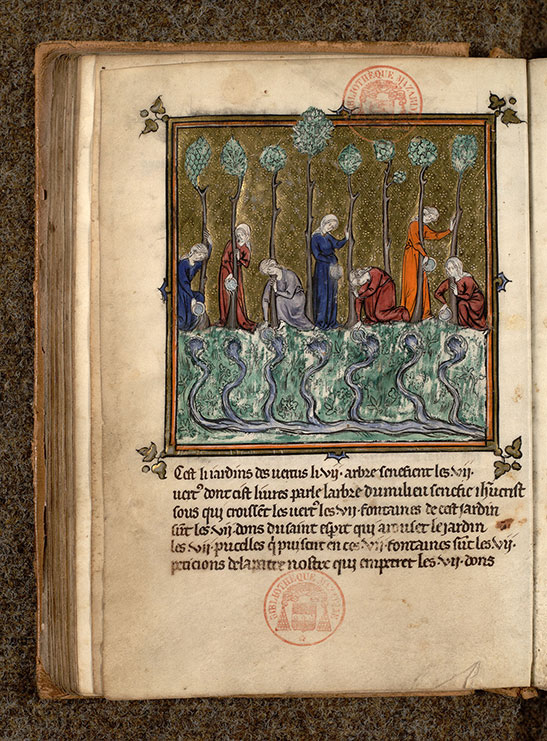 BIBLIOTHÈQUE MAZARINE
Cest li iardins des uertus li .vij. arbre senefient les .vij.
uert' dont cist liures parle larbre du milieu senefie ihucrist
sous qui croissent les uert' les .vij. fontaines de cest iardin
sunt les .vij. dons du saint esprit qui arousent le iardin
les .vij. puceles q̃ puisent en ces .vij. fontaines sunt les .vij.
peticions de la patre nostre qui empetrent les .vij. dons
BIBLIOTHÈQUE MAZARINE